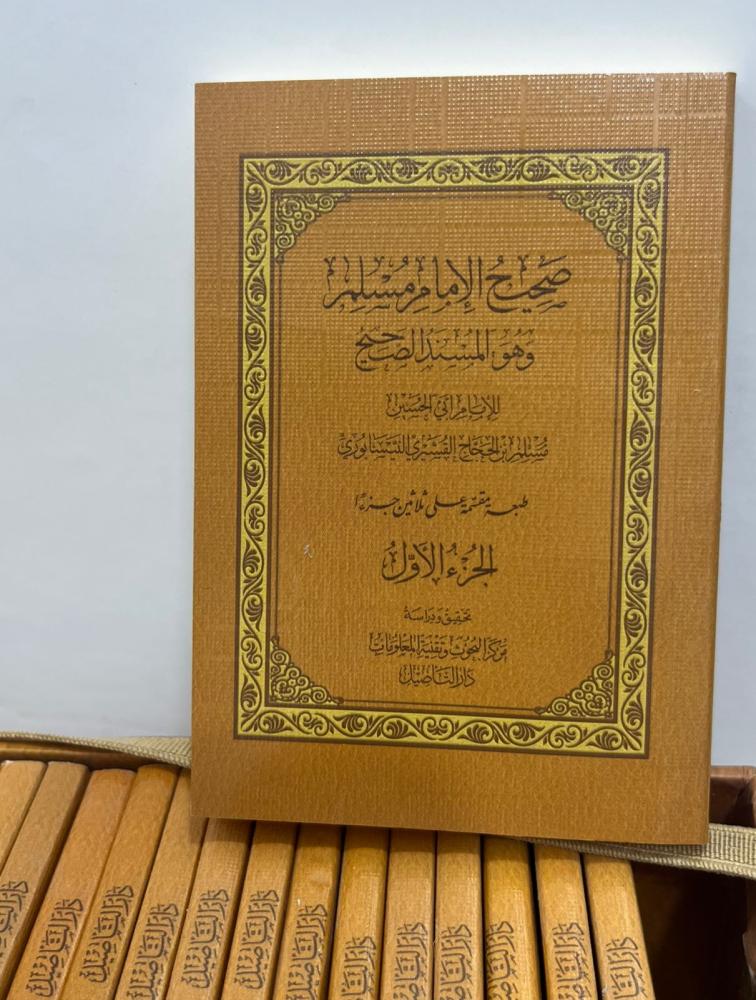 صَحِيحُ الإِمَامِ مُسْلِم
وَهُوَ المُسْنَدُ الصَّحِيحُ
لِلإِمَامِ أَبِي الحُسَيْنِ
مُسْلِمِ بْنِ الحَجَّاجِ القُشَيْرِيِّ النَّيْسَابُورِيِّ
طبعة مقسّمة على ثلاثين جزءًا
الجُزْءُ الأَوَّلُ
تَحْقِيقُ وَدِرَاسَة
مَرْكَزُ البُحُوثِ وَتَقْنِيَةِ المَعْلُومَاتِ
دَارُ التَّأْصِيلِ
دَارُ التَّأْصِيلِ
دَارُ التَّأْصِيلِ
دَارُ التَّأْصِيلِ
دَارُ التَّأْصِيلِ
دَارُ التَّأْصِيلِ
دَارُ التَّأْصِيلِ
دَارُ التَّأْصِيلِ
دَارُ التَّأْصِيلِ
دَارُ التَّأْصِيلِ
دَارُ التَّأْصِيلِ
دَارُ التَّأْصِيلِ
دَارُ التَّأْصِيلِ
دَارُ التَّأْصِيلِ